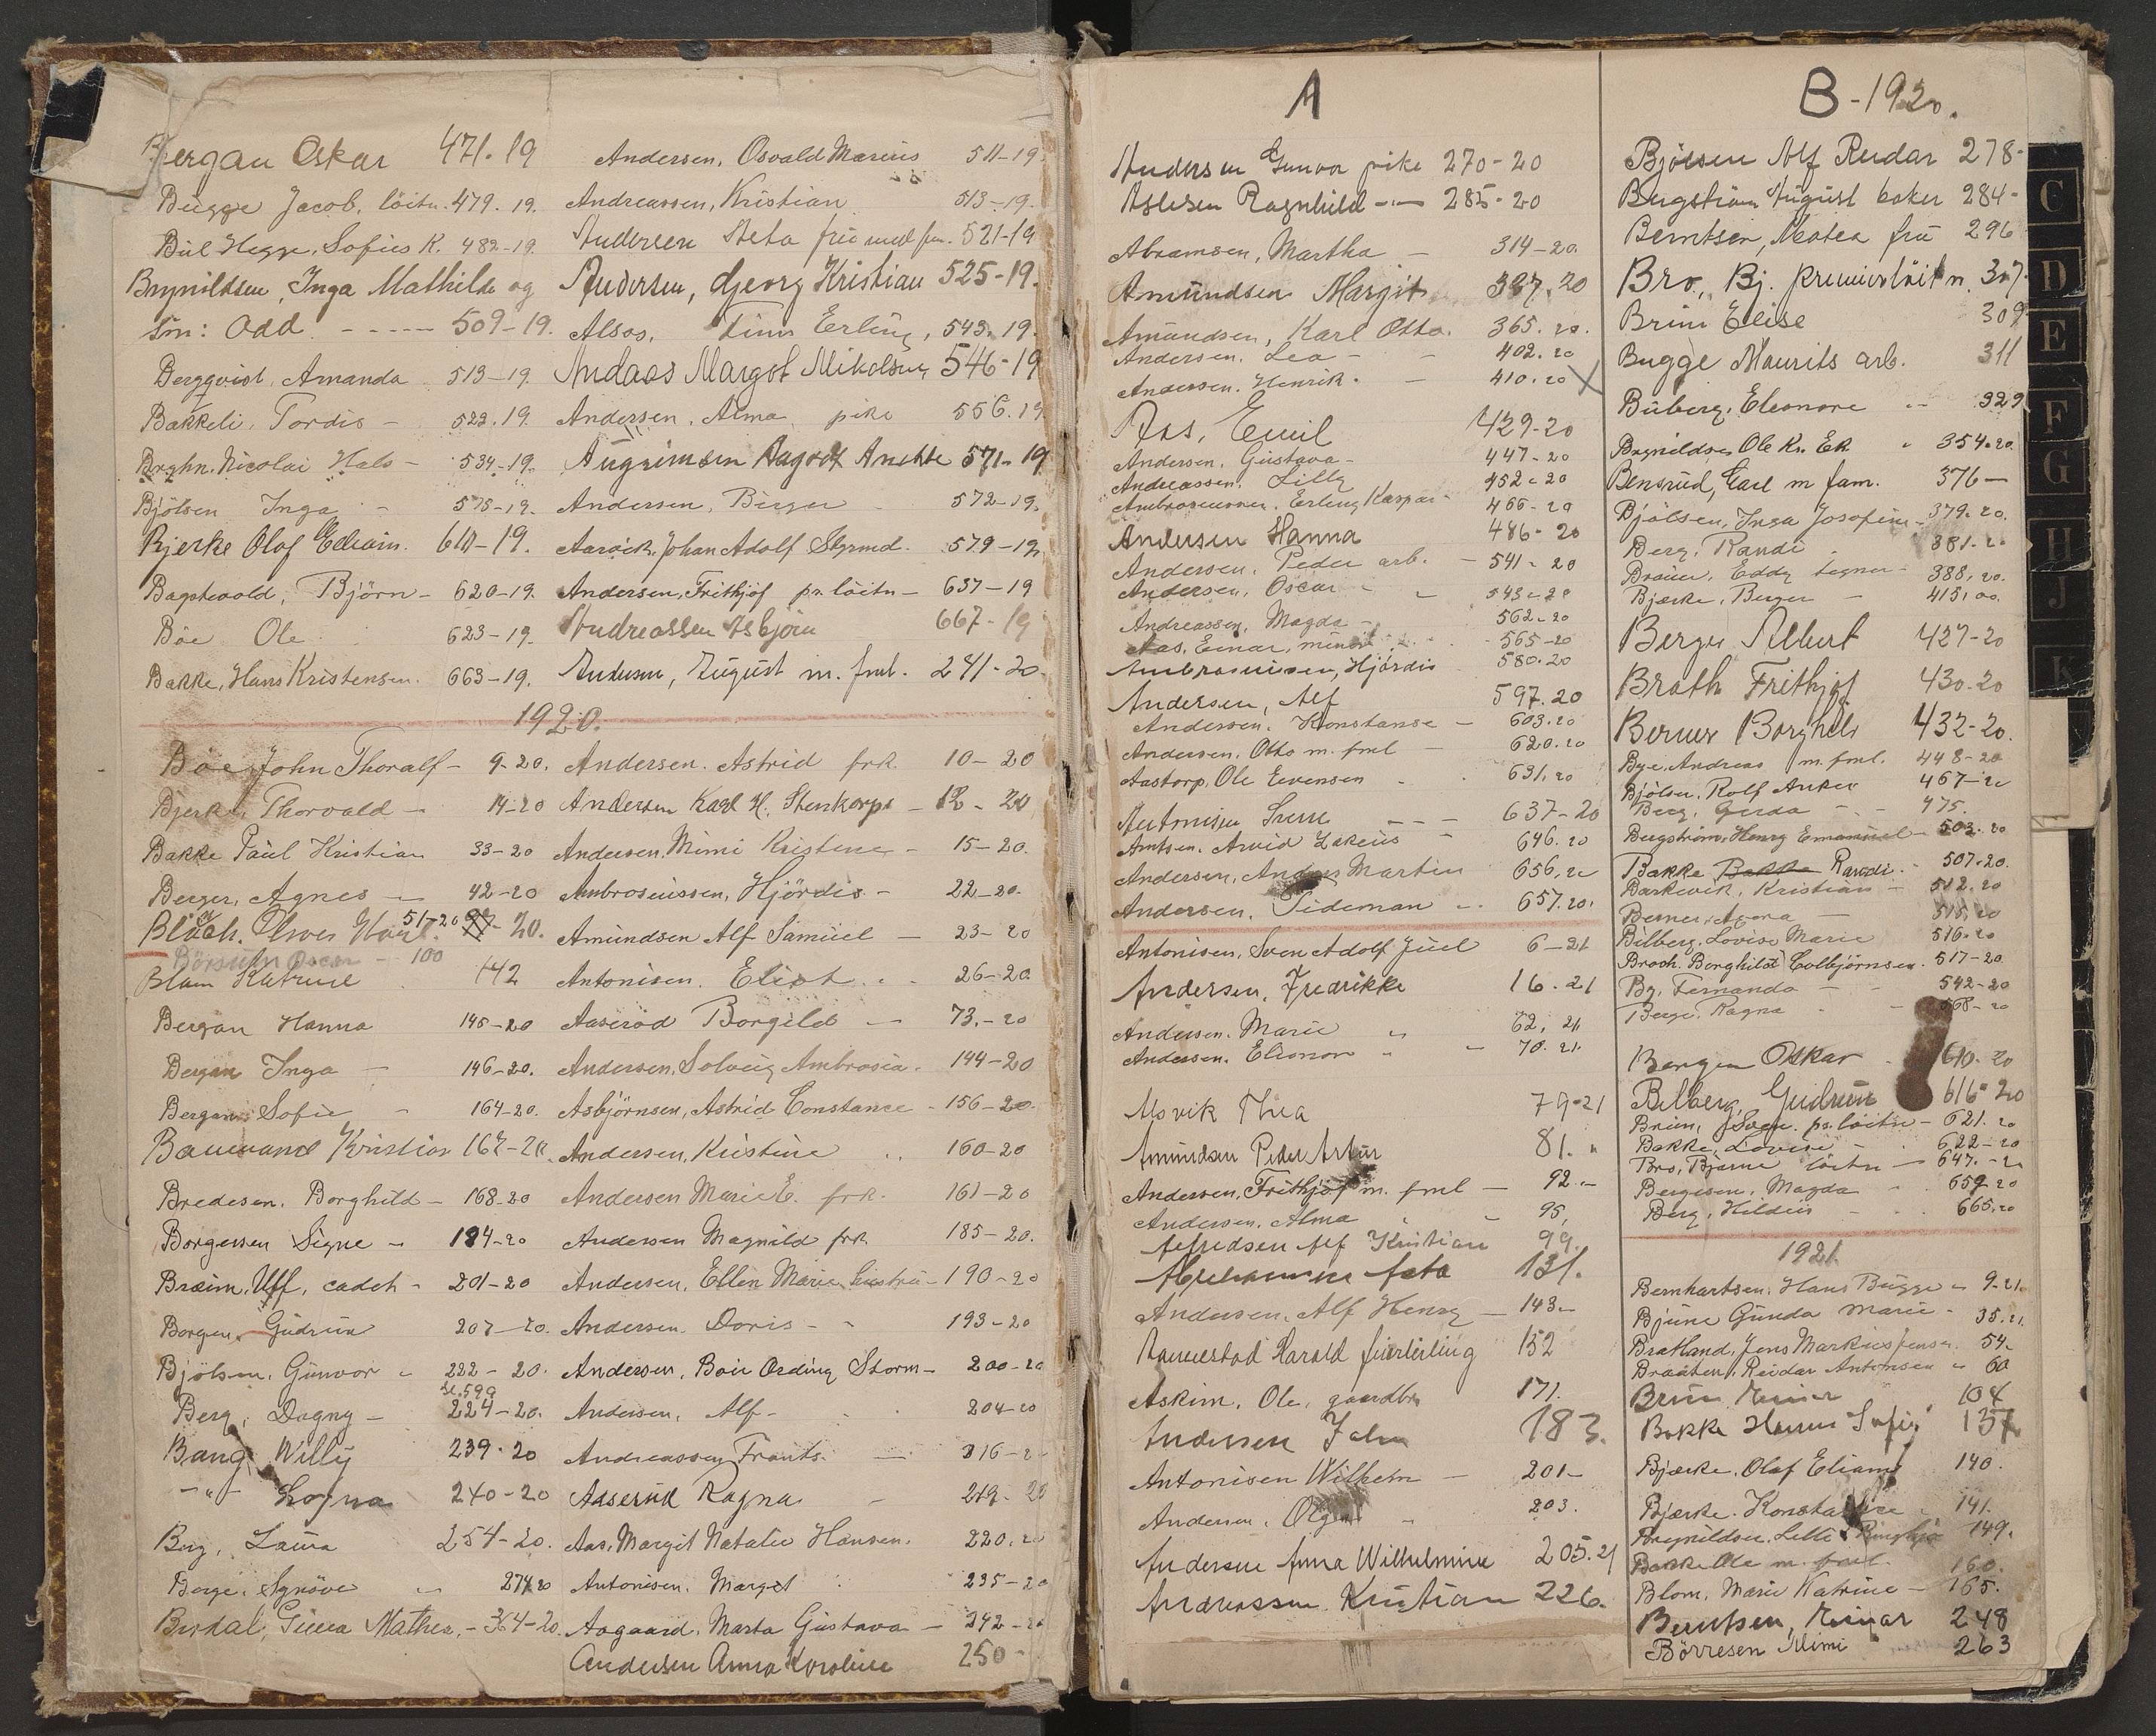 Bergan Oskar 471.19
Bugge Jacob, löitn. 479.19.
Bül Hegge, Sofus K. 482-19.
Brynildsen, Inga Mathilde og
sön: Odd - - - - - 509-19.
Bergqvist, Amanda 513-19.
Bakkeli, Tordis - 522.19.
Brghn. Nicolai Hals - 534-19.
Bjölsen Inga - 575-19.
Bjerke Olaf 19.
Björn - 620-19.
Böe Ole 623-19.
Bakke, Hans Kristensen. 663-19.
1920.
Böe, John Thoralf - 9-20.
Bjerke, Thorvald - 14-20
Bakke Paul Kristian 33-20
Berger, Agnes - 42-20
51-20 20.
Oscar - 100
142
Bergan Hanna 145-20
Bergan Inga - 146-20.
Bergan Sofie - 164-20.
Kristian
Bredesen, Borghild - 168-20
Borgersen Signe - 184-20
cadet - 201-20
Borgen, Gudrun 207-20.
Bjölsen, Gunvor " 222-20.
Berg, Dagny - 224-20.
Bang Willy 239-20
-"- 240-20
Berg, Laura 254-20.
Berge, Synöve " 274.20
Mathea, - 364-20.
Andersen, Osvald Marius 511-19.
Andreassen, Kristian 513-19.
Andersen 521-19
Andersen, Georg Kristian 525-19.
Alsos, Finn Erling, 543.19.
Andaas Margot Mikalsen 546-19
Andersen, Alma, pike 556.19
571-19
Andersen, Birger 572-19.
Johan Adolf 579-19.
Andersen, Frithjof pr. löitn - 637-19
Andreassen Asbjörn 667-19
Andersen, August m. fml. 241-20.
Andersen. Astrid frk. 10-20
Andersen Karl H. Stenkorps - 12-20
Andersen, Mimi Kristine - 15-20.
Ambrosiussen, Hjördis - 22-20.
Amundsen Alf Samuel - 23-20
Antonisen, 26-20.
Aaseröd Borgild - 73.-20
Andersen, Solveig Ambrosia. - 144-20
Asbjörnsen, Astrid Constance - 156-20.
Andersen, Kristine " 160-20
Andersen Marie E. frk. 161-20
Andersen Magnhild frk. 185-20.
Andersen, Ellen Marie 190-20
Andersen. Doris - - 193-20
Andersen, Boie Ording Storm - 200-20
Andersen, Alf - 204-20
Andreassen, Frants. - 216-2
Aaserud Ragna - 219-20
Aas, Margit Natalie Hansen. 220.20
Antonisen. Margit 235-20
Aagaard, Marta Gustava - 242-20
Andersen Anna Karoline 250-
A
Andersen Gunvor pike 270-20
Aslesen Ragnhild -"- 285-20
Abramsen, Martha - 314-20.
Amundsen Margit 20
Amundsen, Karl Otto. 365.20.
Andersen. Lea - - 402.20
Andersen. Henrik. - 410.20 X
Aas, Emil 429-20
Andersen, Gustava - 447-20
Andreassen, Lilly 452-20
Erling Kaspar - 466-20
Andersen Hanna 486-20
Andersen, Peder arb. - 541-20
Andersen, Oscar - - 543-20
Andreassen, Magda - 562-20
Aas, Einar, 565-20
Hjördis 580.20
Andersen, Alf 597.20
Andersen, Konstanse - 603.20
Andersen. Otto m. fml - 620.20
Aastorp, Ole Evensen - 631.20
Antonisen - - - 637-20
Arntsen. Arvid 646.20
Andersen, Martin 656.20
Andersen, Tideman - 657.20.
Antonisen, Sven Adolf Juel 6-21
Andersen, Fredrikke 16.21
Andersen, Marie " 62.21
Andersen, Eleonor " - 70.21.
Alsvik Thea 79-21
Amundsen Peder Artur 81. "
Andersen, Frithjof m. fml - 92.-
Andersen, Alma - 95,
Alfredsen Alf Kristian 99.
131.
Andersen, Alf Henry - 143-
Harald 152
Askim, Ole, gaardbr. 171.
Andersen 183.
Antonisen Wilhelm - 201-
Andersen. Olga 203.
Andersen Anna Wilhelmine 205.21
Andreassen. Kristian 226.
B-1920.
Bjölsen Alf Reidar 278-
Bergström, August baker 284-
Berntsen, Matea fru 296
Bro, Bj. premierlöitn. 307-
Brun Elise 309
Bugge Maurits arb. 311
Biberg, Eleonore " 329
Brynildsen Ole Kr. Ek " 354.20.
Bensrud, Carl m fam. 376-
Bjölsen, Inga Josefine - 379.20.
Berg, Randi . 381.20
Brauer, Eddy tegner - 388.20.
Bjerke, Berger - 415.20.
Berger Albert 427-20
Brath Frithjof 430.20
Berner Borghild 432-20.
Bye, Andreas m. fml. 448-20
Bjölsen, Rolf Anker 467-20
Berg, Gerda - - 475.
Bergström, Henry Emanuel - 503.20
Bakke Randi. 507-20.
Barkevik, Kristian - 512.20
Berner, 515.20
Bilberg, Lovise Marie 516.20
Brock, Borghild Colbjörnsen. 517-20.
By, Fernanda - - 542-20
Berge, Ragna - 568-20
Bergan Oskar 610.20
Bilberg, Gudrun 616-20
Brun, pr. löitn - 621.20
Bakke, Lovise - 622-20
Bro, Bjarne löitn - 647.-20
Bergesen, Magda 659-20
Berg, Hildur - 665.20
1921.
Bernhartsen, Hans Bugge - 9-21.
Bjune Gunda Marie - 35.21.
Bratland, Jens Markus Jensen 54.
Braaten, Reidar Antonsen " 60
Brun 104
Bakke 137
Bjerke, Olaf Eliam 140.
Bjærke. Konstanse 141.
149.
Bakke Ole m. fml. 160.
Blom, Marie Katrine - 165.
Berntsen, Einar 248
Börresen Mimi 263
C
D
E
F
G
H
J
K